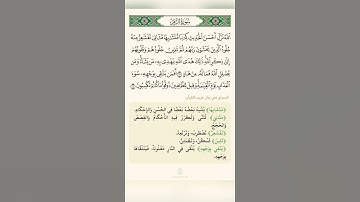 سُورَةُ الزُّمَرِ
اللَّهُ نَزَّلَ أَحْسَنَ الْحَدِيثِ كِتَابًا مُتَشَابِهًا مَثَانِيَ تَقْشَعِرُّ مِنْهُ
جُلُودُ الَّذِينَ يَخْشَوْنَ رَبَّهُمْ ثُمَّ تَلِينُ جُلُودُهُمْ وَقُلُوبُهُمْ
إِلَى ذِكْرِ اللَّهِ ذَلِكَ هُدَى اللَّهِ يَهْدِي بِهِ مَنْ يَشَاءُ وَمَنْ
يُضْلِلِ اللَّهُ فَمَا لَهُ مِنْ هَادٍ ۝ أَفَمَنْ يَتَّقِي بِوَجْهِهِ سُوءَ
الْعَذَابِ يَوْمَ الْقِيَامَةِ وَقِيلَ لِلظَّالِمِينَ ذُوقُوا مَا كُنْتُمْ تَكْسِبُونَ ۝
السراج في بيان غريب القرآن
﴿مُتَشَابِهًا﴾ يُشْبِهُ بَعْضُهُ بَعْضًا فِي الْحُسْنِ وَالْإِحْكَامِ.
﴿مَثَانِيَ﴾ تُثَنَّى وَتُكَرَّرُ فِيهِ الْأَحْكَامُ وَالْقَصَصُ
وَالْحُجَجُ.
﴿تَقْشَعِرُّ﴾ تَضْطَرِبُ، وَتَرْتَعِدُ.
﴿تَلِينُ﴾ تَسْكُنُ، وَتَطْمَئِنُّ.
﴿يَتَّقِي بِوَجْهِهِ﴾ يُلْقَى فِي النَّارِ مَغْلُولًا، فَيَتَلَقَّاهَا
بِوَجْهِهِ.